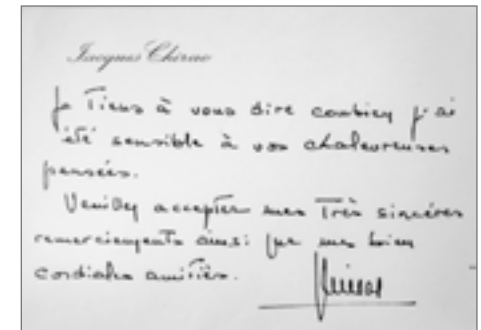 Jacques Chirac
Je Tiens à vous dire combien j'ai
été sensible à vos chaleureuses
pensées.
Veuillez accepter mes Très sincères
remerciements ainsi que mes bien
cordiales amitiés.